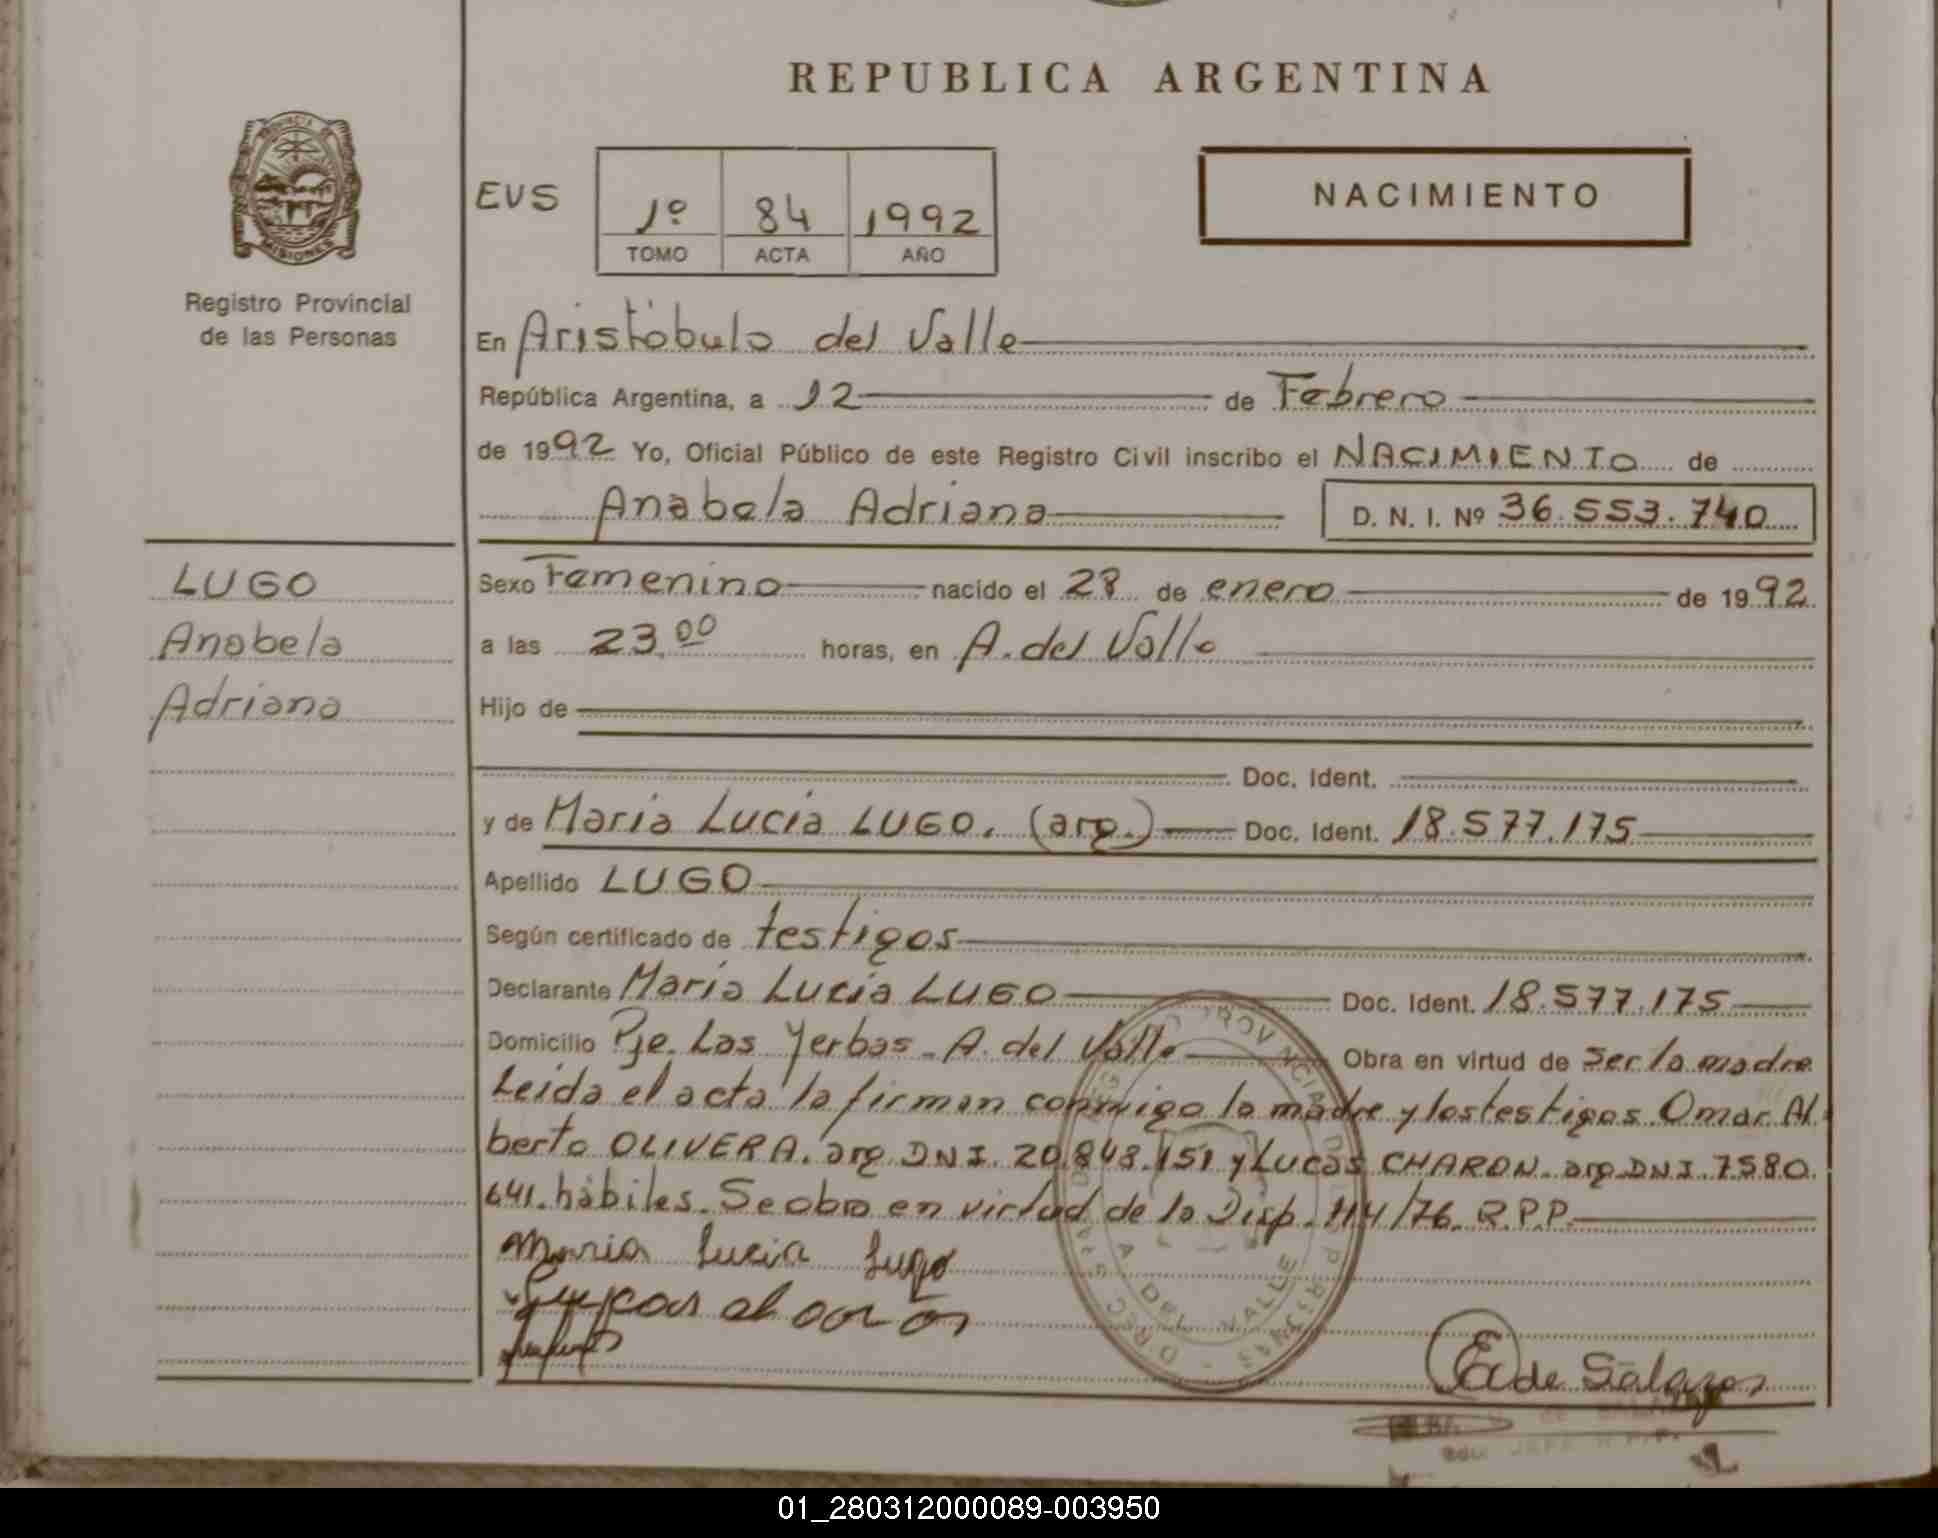 REPUBLICA ARGENTINA
PROVINCIA DE
MISIONES
Registro Provincial
de las Personas
EVS
1º 84 1992
TOMO ACTA AÑO
NACIMIENTO
En Aristóbulo del Valle
República Argentina, a 12 de Febrero
de 1992 Yo, Oficial Público de este Registro Civil inscribo el NACIMIENTO de
Anabela Adriana D. N. I. Nº 36.553.740
LUGO
Anabela
Adriana
Sexo Femenino nacido el 28 de enero de 1992
a las 23,00 horas, en A. del Valle
Hijo de
Doc. Ident.
y de Maria Lucia LUGO. (arg.) Doc. Ident. 18.577.175
Apellido LUGO
Según certificado de testigos
Declarante Maria Lucia LUGO Doc. Ident. 18.577.175
Domicilio Pje. Las Yerbas - A. del Valle Obra en virtud de ser la madre
Leida el acta la firman conmigo la madre y los testigos. Omar Al
berto OLIVERA. arg. DNI. 20.848.151 y Lucas CHARON. arg. DNI. 7580.
641. hábiles. Se obra en virtud de la Disp. 114/76. R.P.P.
Maria Lucia Lugo
A. DEL VALLE
E de Salazar
01_280312000089-003950